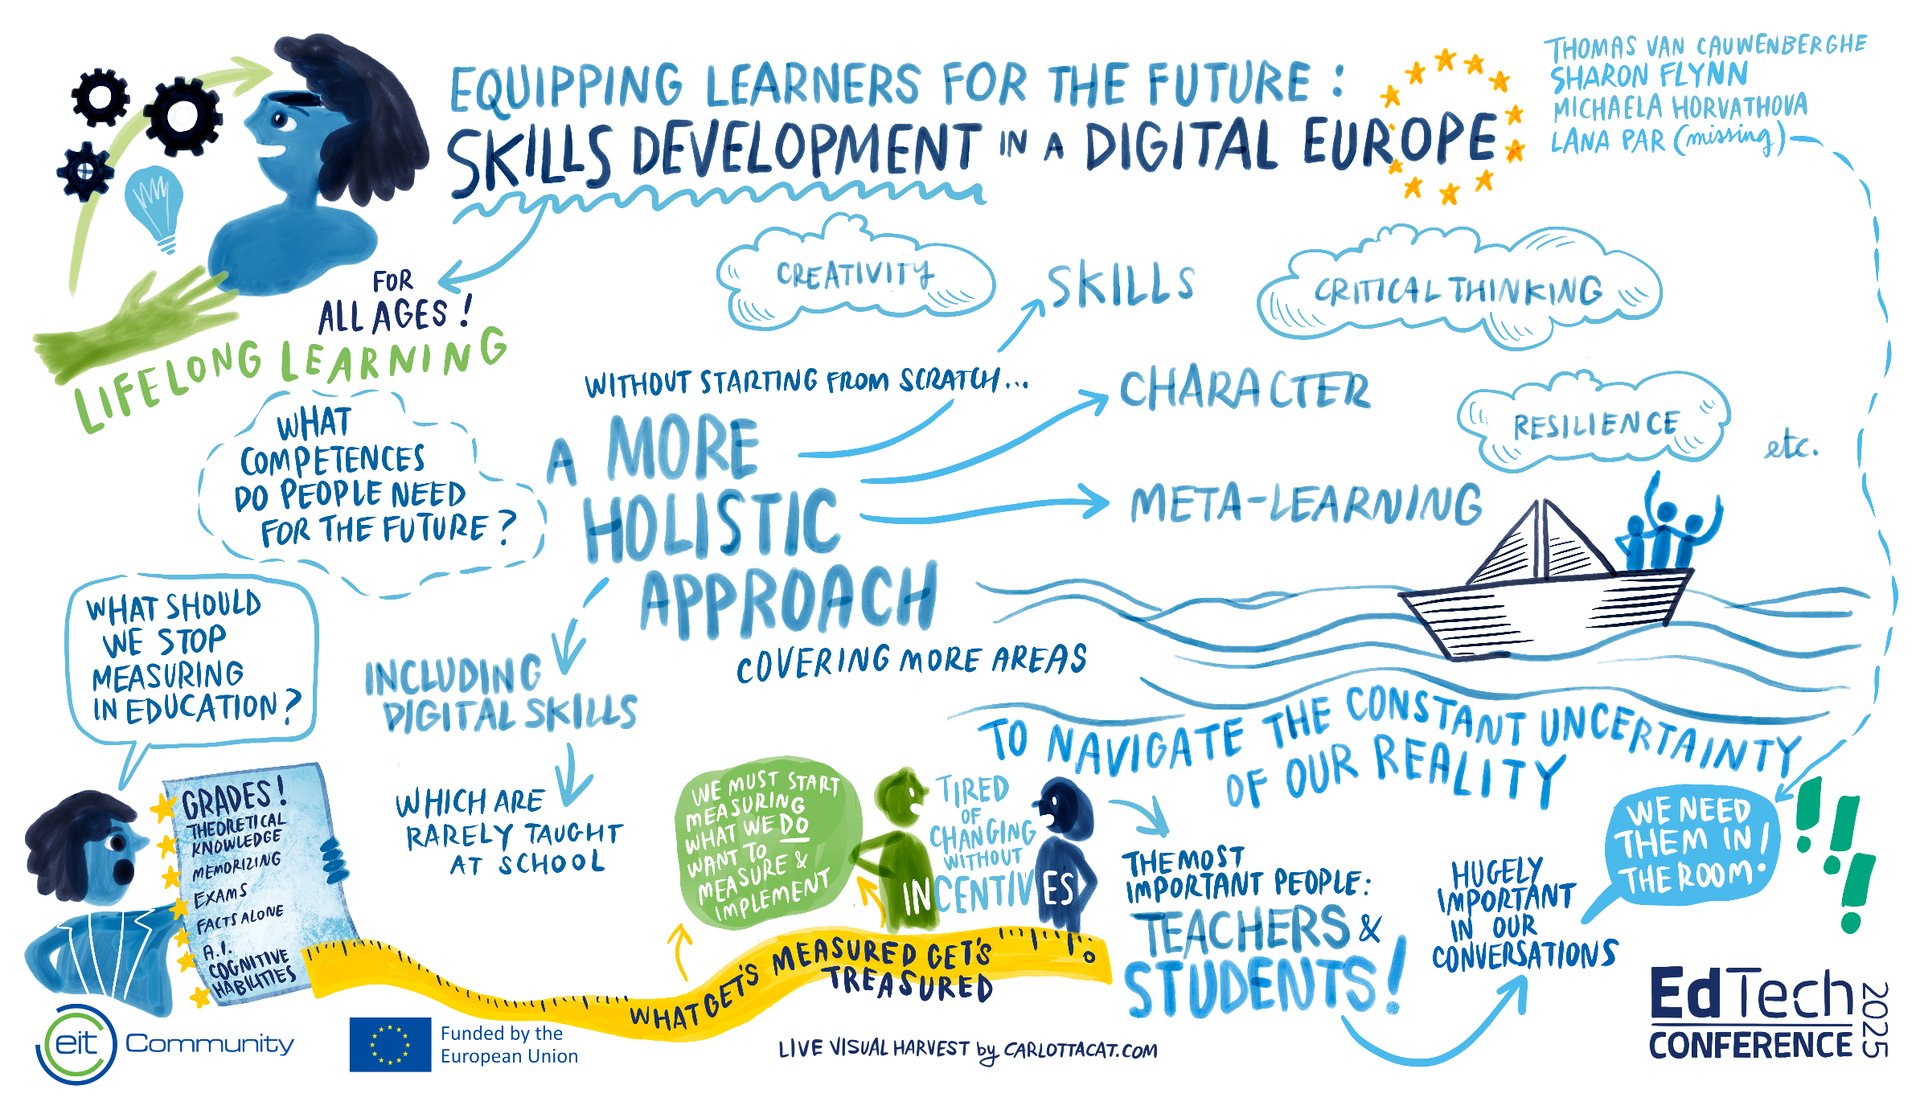 EQUIPPING LEARNERS FOR THE FUTURE :
SKILLS DEVELOPMENT IN A DIGITAL EUROPE
THOMAS VAN CAUWENBERGHE
SHARON FLYNN
MICHAELA HORVATHOVA
LANA PAR (missing)
FOR
ALL AGES !
LIFELONG LEARNING
CREATIVITY
SKILLS
CRITICAL THINKING
WITHOUT STARTING FROM SCRATCH...
CHARACTER
RESILIENCE
etc.
META-LEARNING
WHAT
COMPETENCES
DO PEOPLE NEED
FOR THE FUTURE ?
A MORE
HOLISTIC
APPROACH
COVERING MORE AREAS
WHAT SHOULD
WE STOP
MEASURING
IN EDUCATION ?
INCLUDING
DIGITAL SKILLS
WHICH ARE
RARELY TAUGHT
AT SCHOOL
TO NAVIGATE THE CONSTANT UNCERTAINTY
OF OUR REALITY
GRADES !
THEORETICAL
KNOWLEDGE
MEMORIZING
EXAMS
FACTS ALONE
A.I.
COGNITIVE
HABILITIES
WE MUST START
MEASURING
WHAT WE DO
WANT TO
MEASURE &
IMPLEMENT
TIRED
OF
CHANGING
WITHOUT
INCENTIVES
WHAT GET'S MEASURED GET'S
TREASURED
THE MOST
IMPORTANT PEOPLE:
TEACHERS &
STUDENTS!
HUGELY
IMPORTANT
IN OUR
CONVERSATIONS
WE NEED
THEM IN
THE ROOM!
!!!!
eit Community
Funded by the
European Union
LIVE VISUAL HARVEST by CARLOTTACAT.COM
EdTech
CONFERENCE
2025